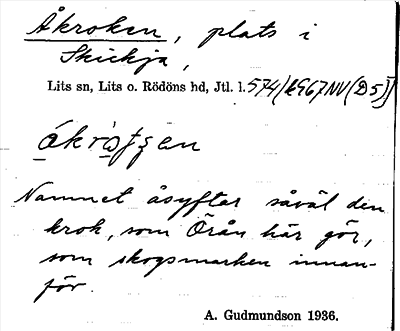 Åkroken, plats i
Skickja,
Lits sn, Lits o. Rödöns hd, Jtl. l. 574/2967NV(D5)
Namnet åsyftar såväl den
krok, som Örån här gör,
som skogsmarken innan-
för.
A. Gudmundson 1936.